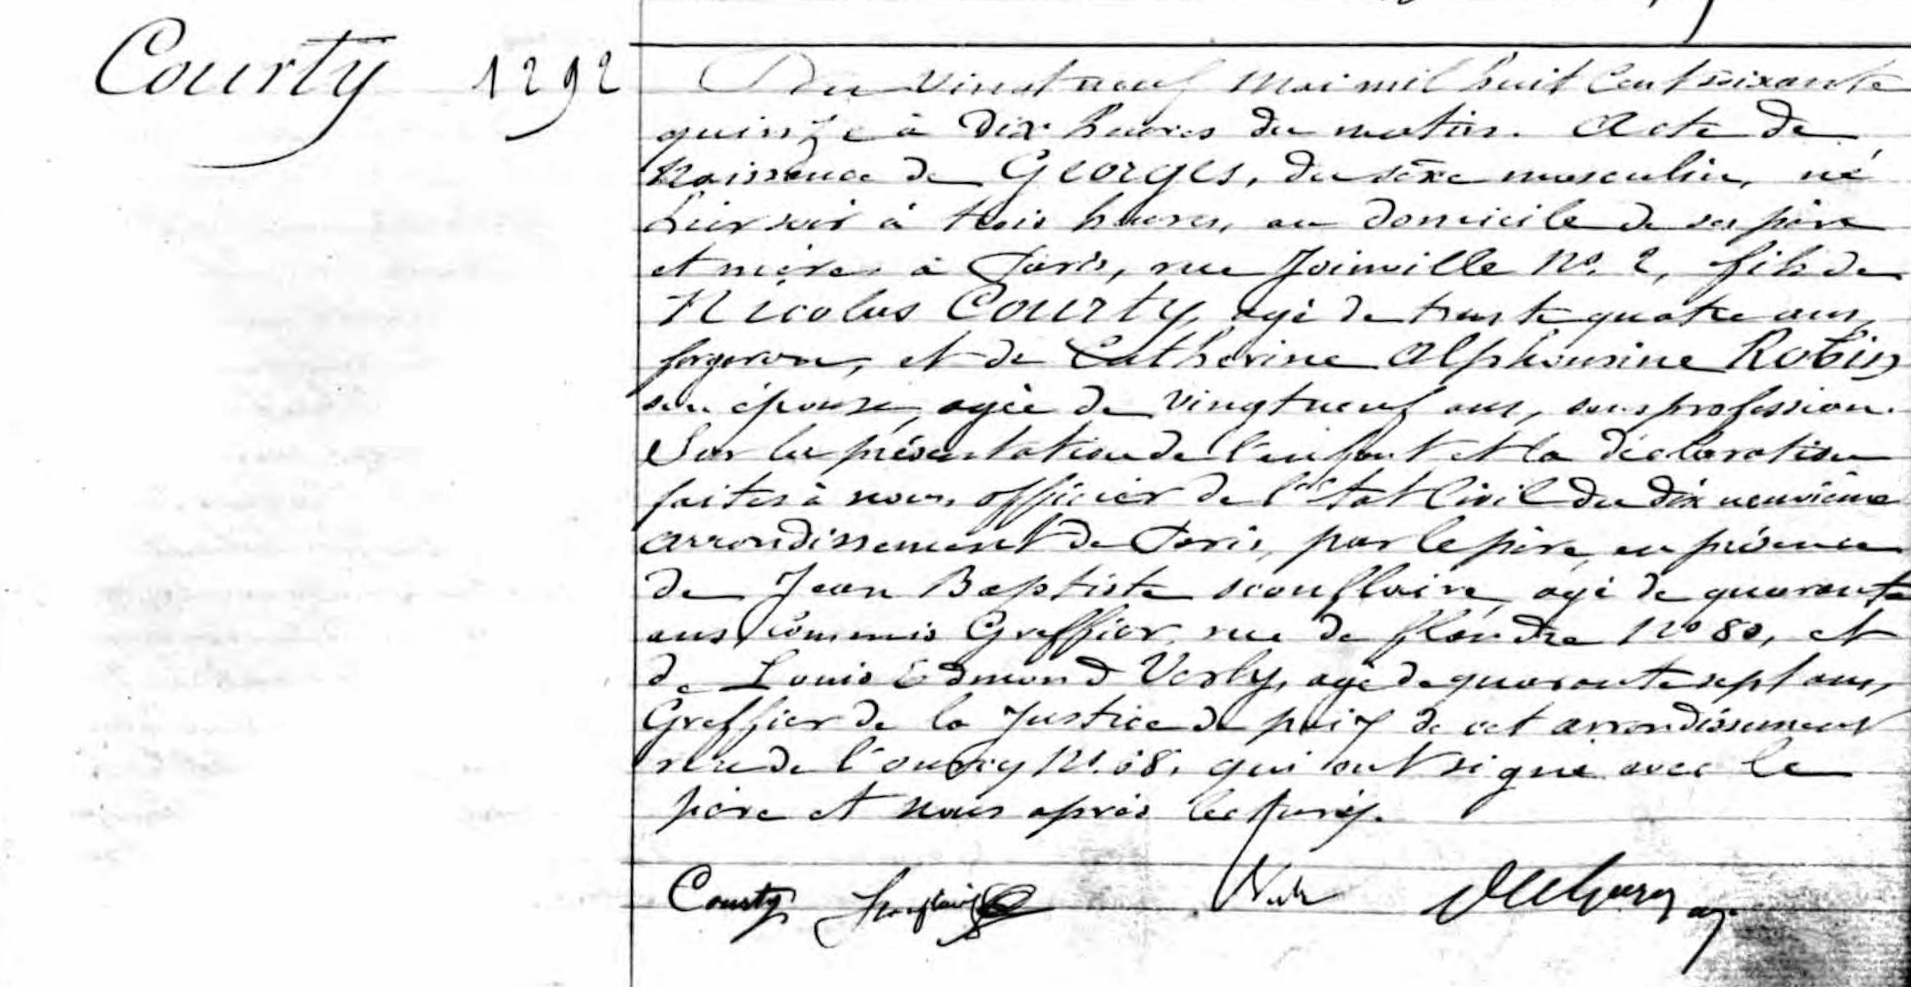 Courty 1292
Du vingt neuf Mai mil huit cent soixante
quinze à Dix heures du matin. Acte de
Naissance de Georges, du sexe masculin, né
hier soir à trois heures, au domicile de ses père
et mère à Paris, rue Joinville No. 2, fils de
Nicolas COURTY, agé de trente quatre ans,
forgeron, et de Catherine Alphonsine Robin
son épouse, agée de vingt neuf ans, sans profession.
Sur la présentation de l'enfant et la déclaration
faites à nous, officier de l'état Civil du dix neuvième
arrondissement de Paris, par le père, en présence
de Jean Baptiste scouflaire, agé de quarante
ans Commis Greffier, rue de flandre No 80, et
de Louis Edmond Verly, agé de quarante sept ans,
Greffier de la Justice de paix de cet arrondissement
rue de l'ourcq No. 68, qui ont signé avec le
père et nous après lecture.
Courty Scouflaire